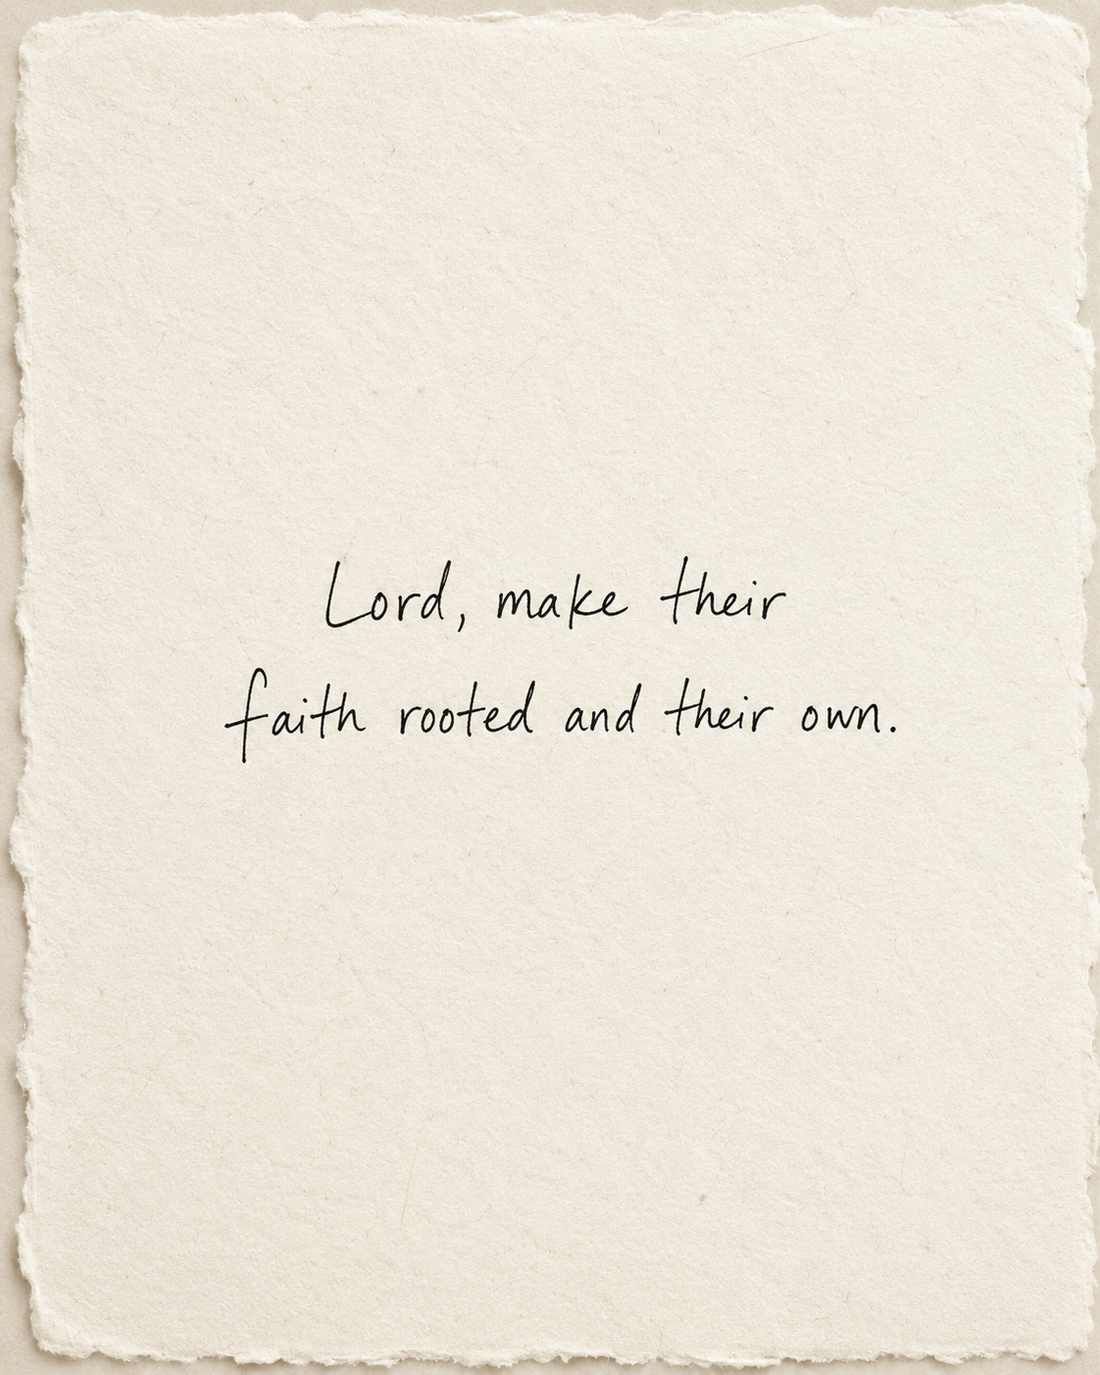 Lord, make their
faith rooted and their own.